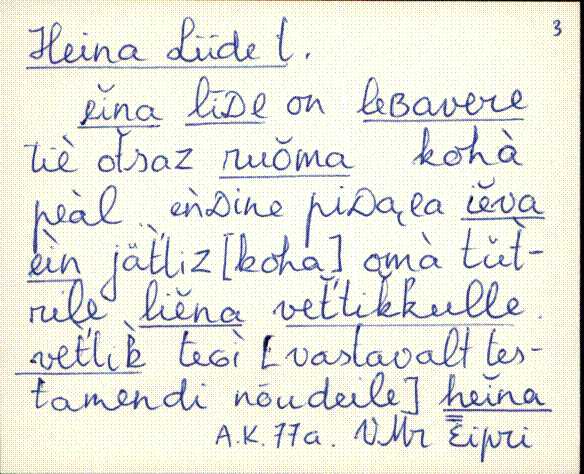 3
Heina Liide t.
eĭna līDe on leBavere
tiè ot̆saz ruŏma kohà
peàl. eǹDine piDaja iĕva
eìn jät̆tiz [koha] omà tüt̀-
rile liĕna vet̆tikkulle.
vet̆tik̀ tegì [vastavalt tes-
tamendi nõudeile] heĭna
A.K. 77a. VMr Eipri